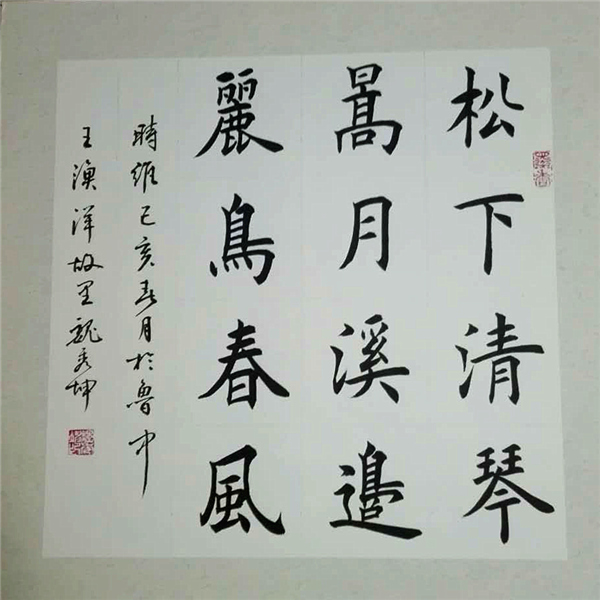 松下清琴
暠月溪邉
麗鳥春風
時維己亥春月於魯中
王漁洋故里魏秀坤